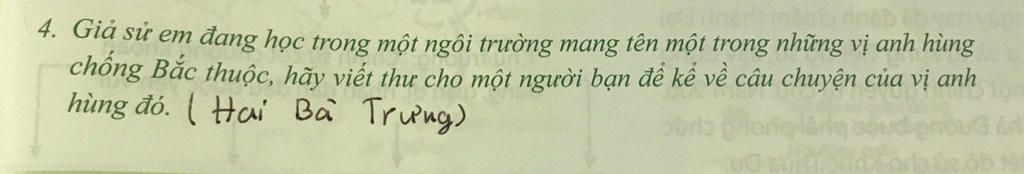 4. Giả sử em đang học trong một ngôi trường mang tên một trong những vị anh hùng
chống Bắc thuộc, hãy viết thư cho một người bạn để kể về câu chuyện của vị anh
hùng đó. ( Hai Bà Trưng)